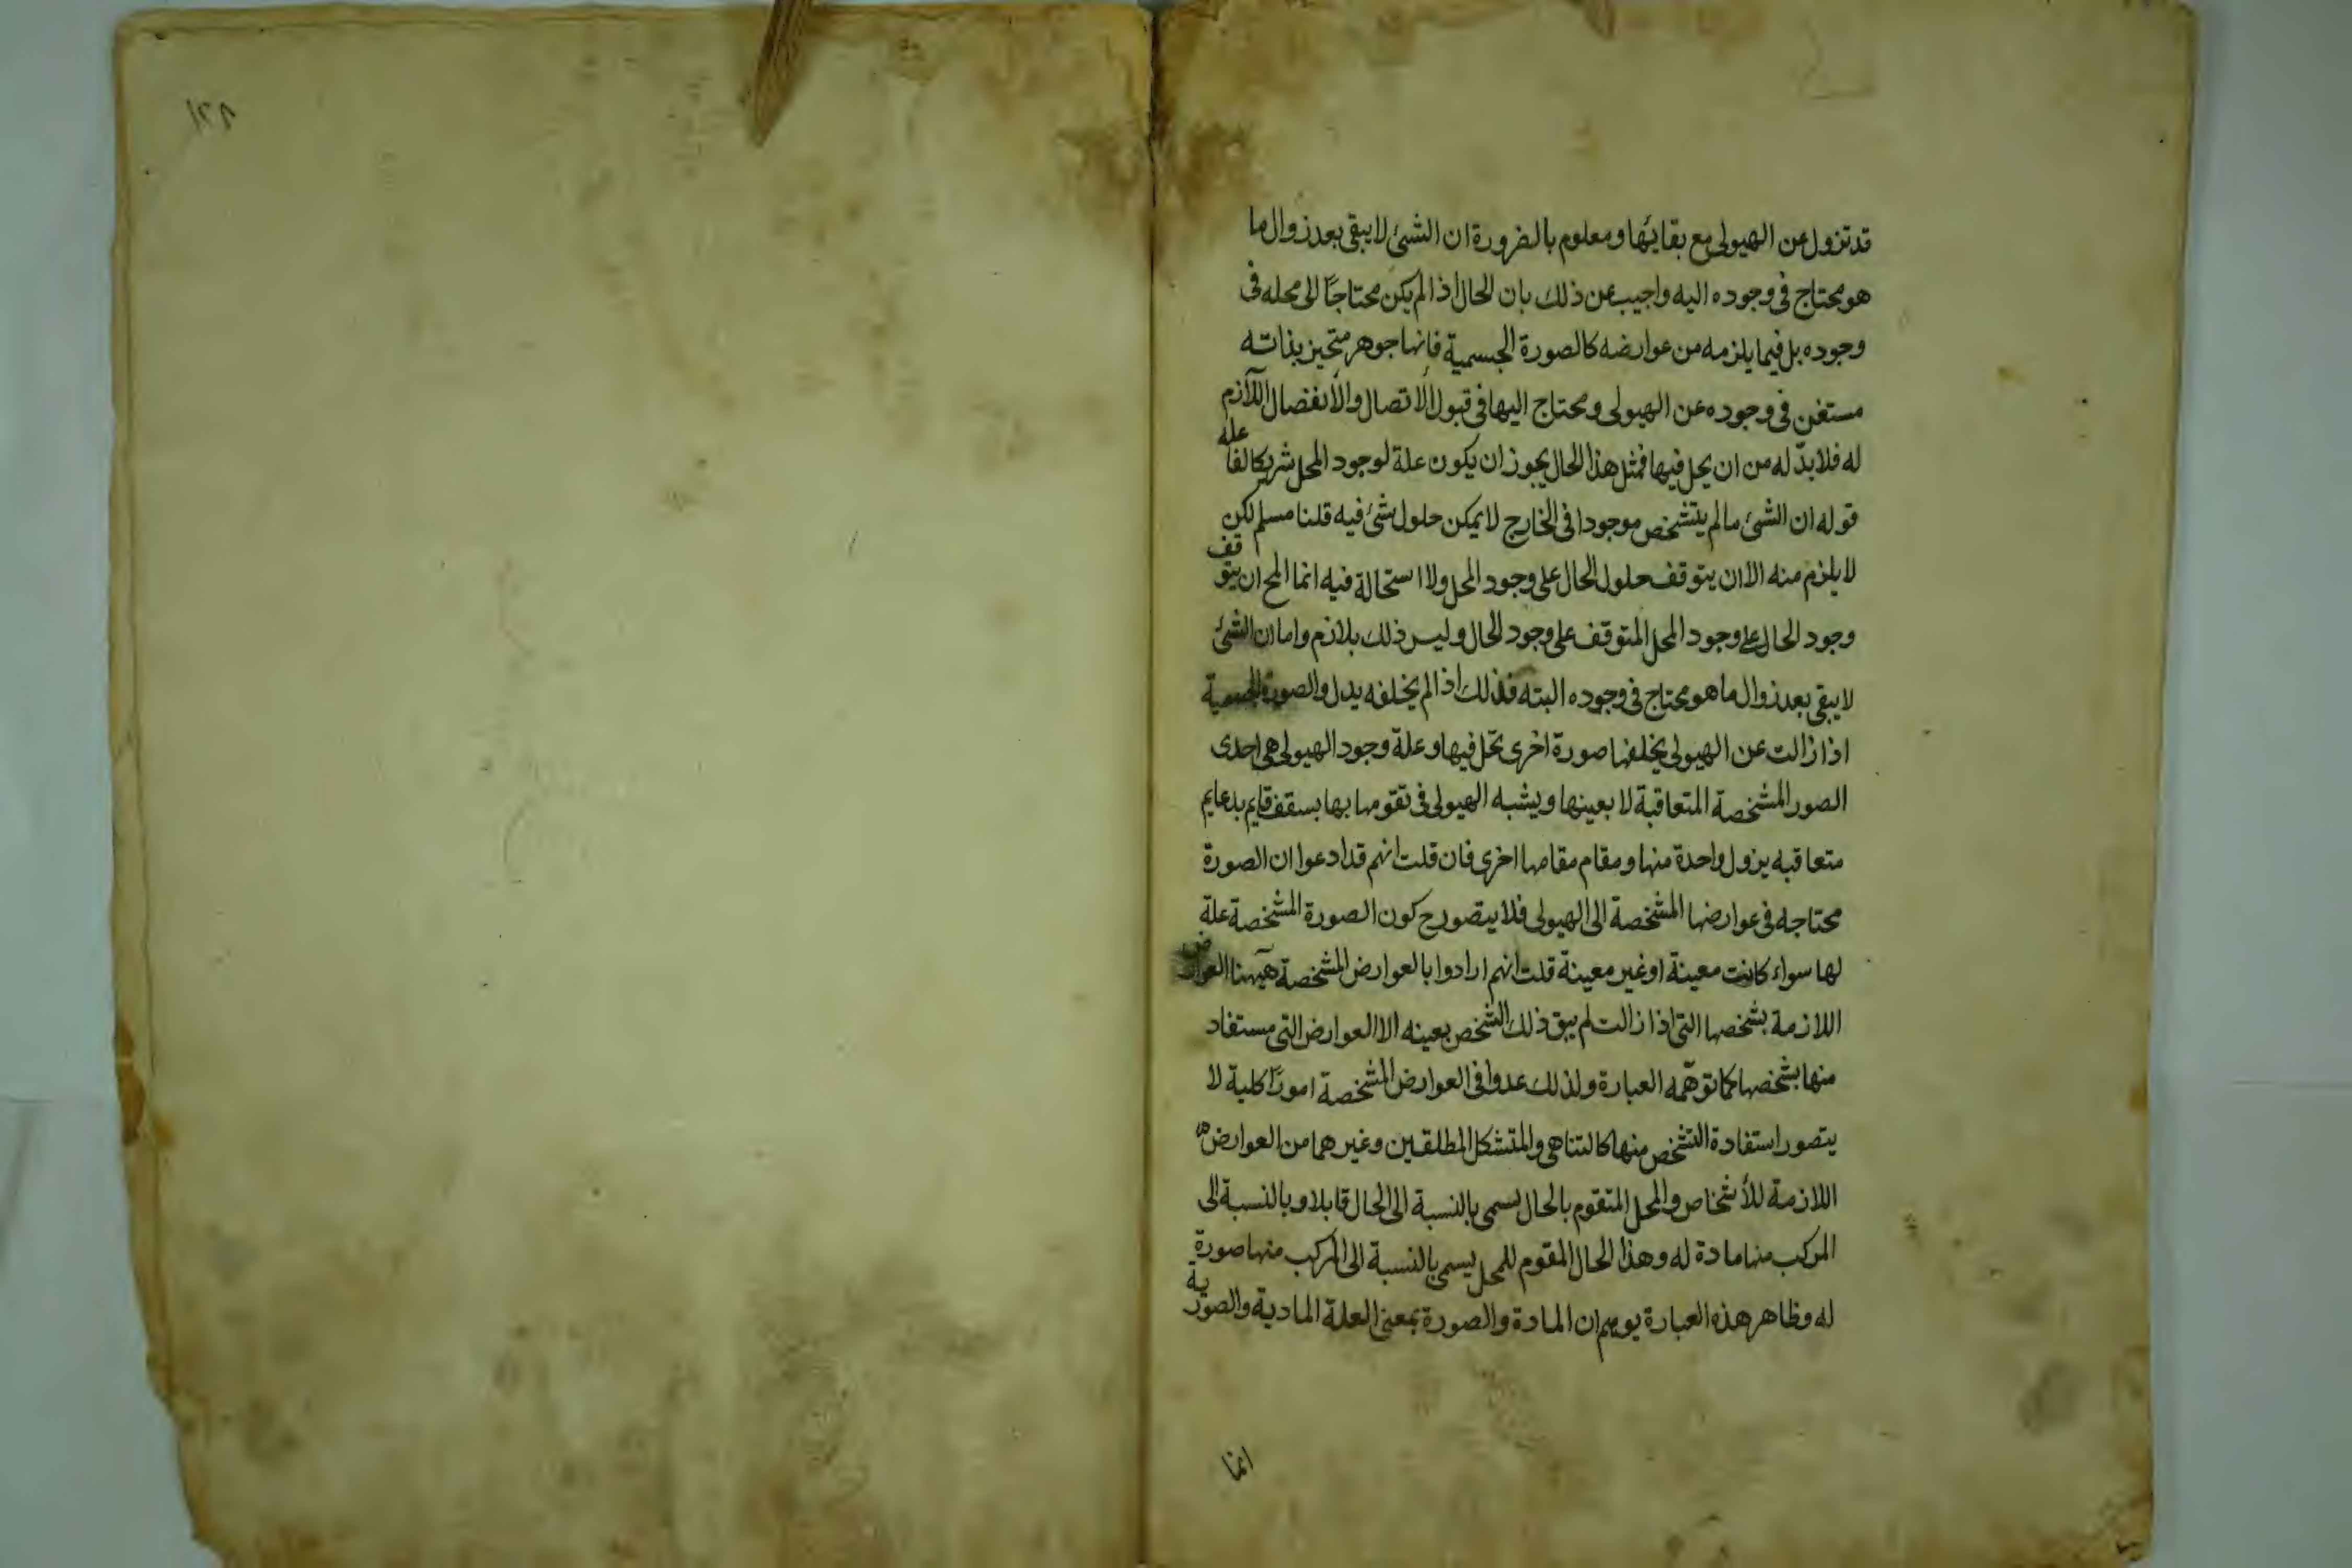 ١٢٨
قد تزول عن الهيولى مع بقائها ومعلوم بالضرورة ان الشئ لا يبقى بعد زوال ما
هو محتاج فى وجوده اليه واجيب عن ذلك بان الحال اذا لم يكن محتاجًا الى محله فى
وجوده بل فيما يلزمه من عوارضه كالصورة الجسمية فانها جوهر متحيز بذاته
مستغن فى وجوده عن الهيولى ومحتاج اليها فى قبول الأتصال والأنفصال اللآزم
له فلا بدّ له من ان يحل فيها فمثل هذا الحال يجوز ان يكون علة لوجود المحل شريكا لفاعله
قوله ان الشئ ما لم يتشخص موجودا فى الخارج لا يمكن حلول شئ فيه قلنا مسلم لكن
لا يلزم منه الا ان يتوقف حلول الحال على وجود المحل ولا استحالة فيه انما المح ان يتوقف
وجود الحال على وجود المحل المتوقف على وجود الحال وليس ذلك بلازم واما ان الشئ
لا يبقى بعد زوال ما هو محتاج فى وجوده البته فذلك اذا لم يخلفه بدل والصورة الجسمية
اذا زالت عن الهيولى يخلفها صورة اخرى تحل فيها وعلة وجود الهيولى هى احدى
الصور المشخصة المتعاقبة لا بعينها ويشبه الهيولى فى تقوّمها بها بسقف قايم بدعايم
متعاقبه يزول واحدة منها ومقام مقامها اخرى فان قلت انهم قد ادعوا ان الصورة
محتاجه فى عوارضها المشخصة الى الهيولى فلا يتصور ح كون الصورة المشخصة علة
لها سواء كانت معينة او غير معينة قلت انهم ارادوا بالعوارض المشخصة هيهنا العوارض
اللازمة بشخصها التى اذا زالت لم يبق ذلك الشخص بعينه الا العوارض التى مستفاد
منها بشخصها كما توهّمه العبارة ولذلك عدوا فى العوارض المشخصة امورًا كلية لا
يتصور استفادة التشخص منها كالتناهى والمتشكل المطلقين وغيرهما من العوارض
اللازمة للأشخاص والمحل المتقوم بالحال يسمى بالنسبة الى الحال قابلا وبالنسبة الى
المركب منها مادة له وهذا الحال المقوم للمحل يسمى بالنسبة الى المركب منها صورة
له وظاهر هذه العبارة يوهم ان المادة والصورة بمعنى العلة المادية والصورية
انما